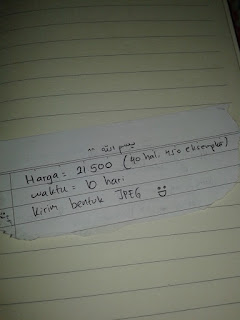 بسم الله ^^
Harga = 21 500 (40 hal. 450 eksemplar)
waktu = 10 hari
kirim bentuk JPEG